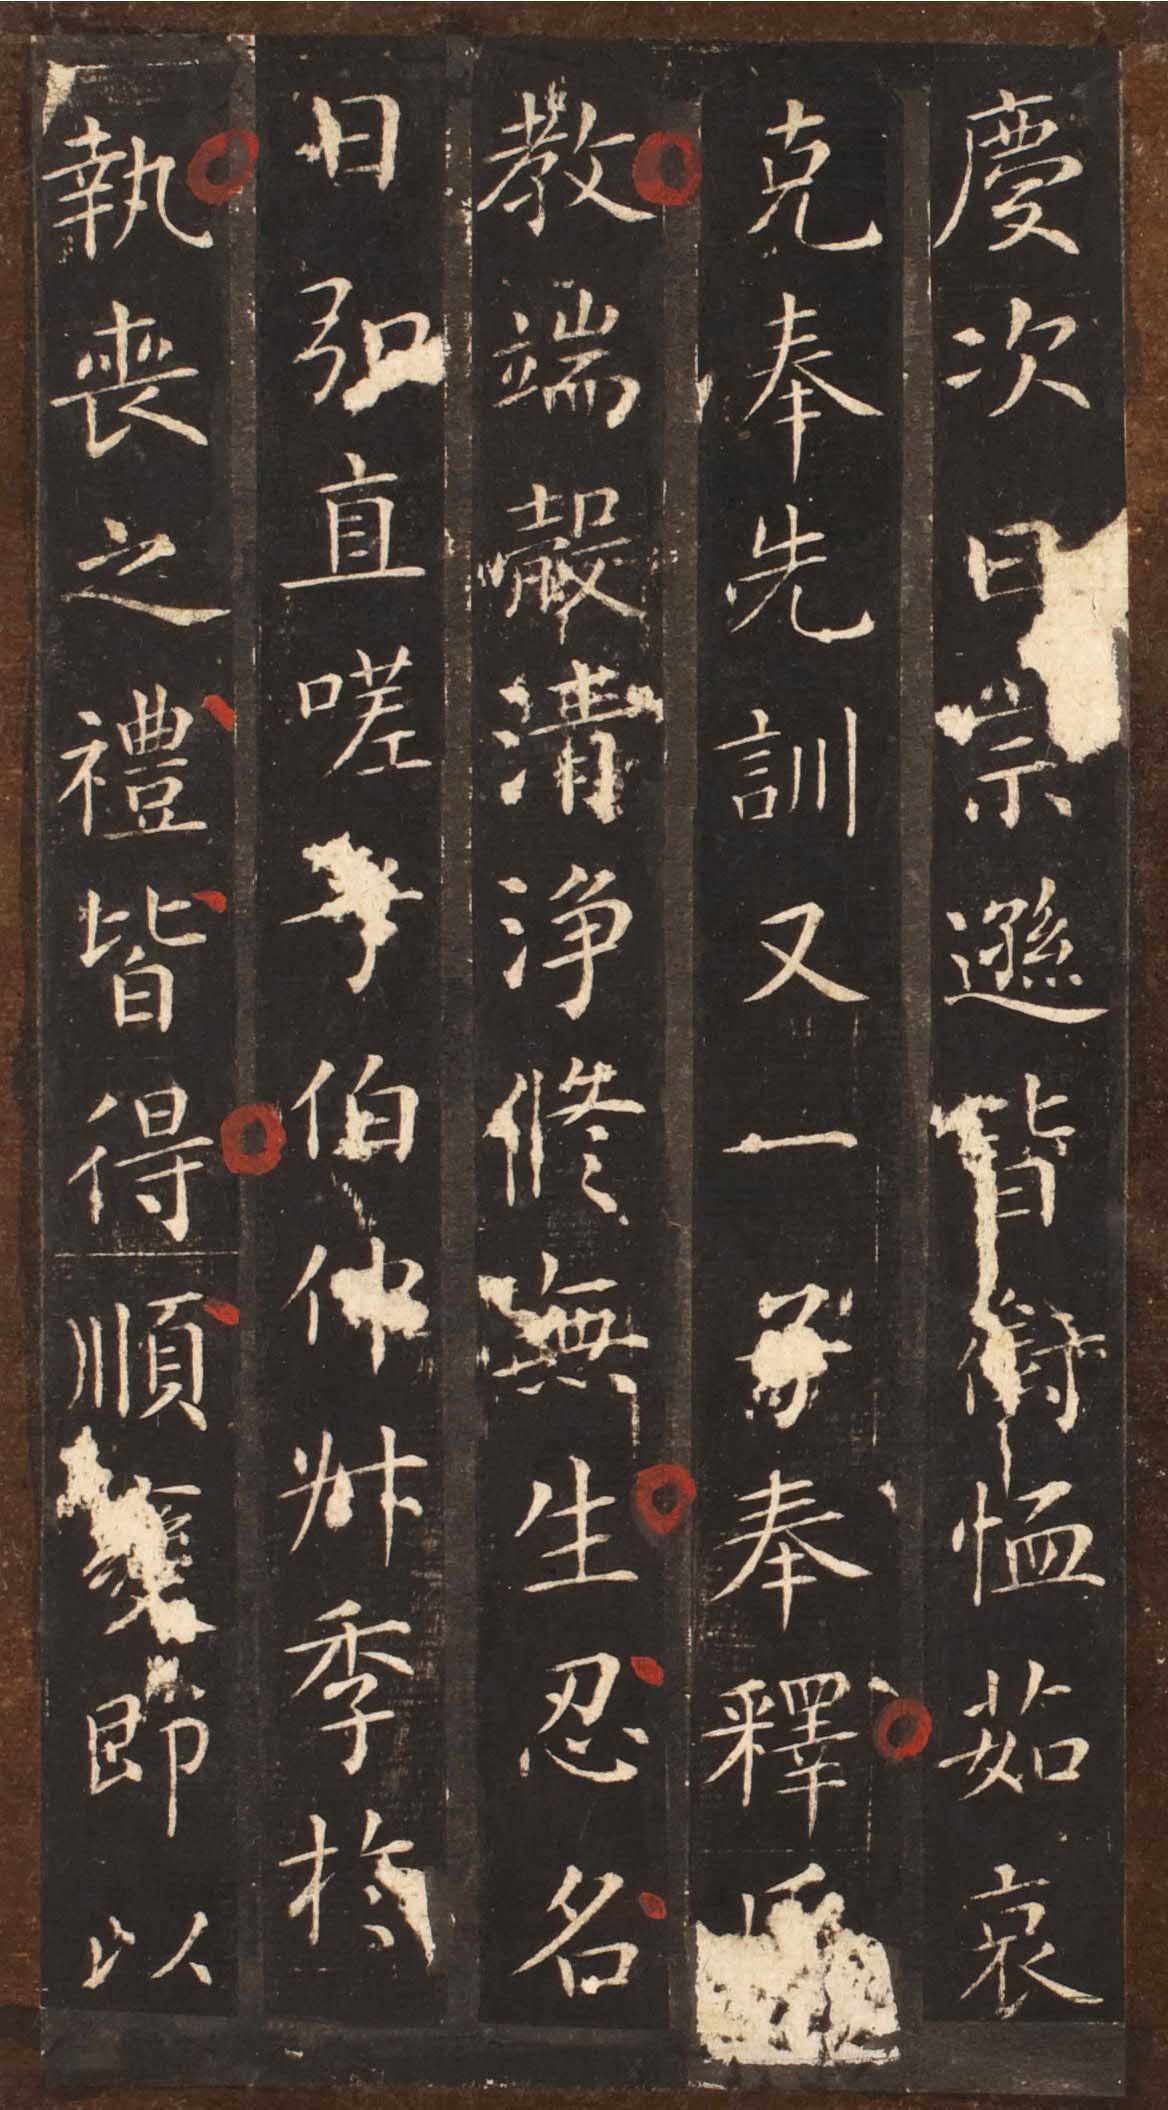 慶次曰崇遜皆銜恤茹哀
克奉先訓又一子奉釋氏
教端嚴清淨修無生忍名
曰弘直嗟乎伯仲叔季於
執喪之禮皆得順變即以